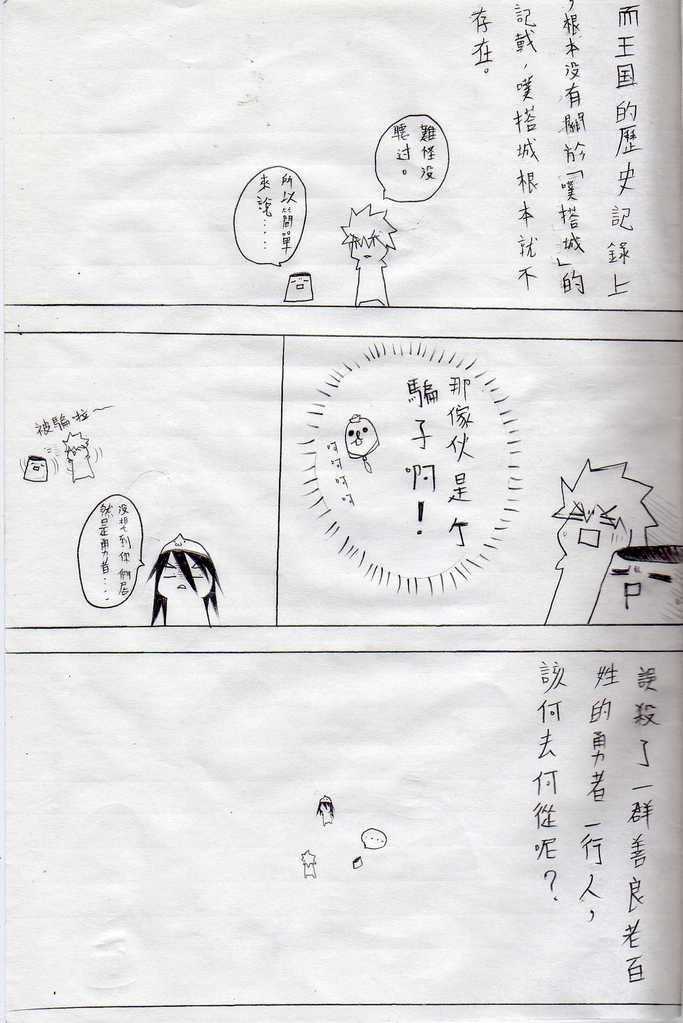 而王国的歷史記錄上
,根本没有關於「噗搭城」的
記載,噗搭城根本就不
存在。
難怪没
聽过。
所以簡單
來說.....
那傢伙是个
騙子啊!
呵呵呵呵
被騙啦~
没想到你們居
然是勇者....
誤殺了一群善良老百
姓的勇者一行人,
該何去何從呢?
...